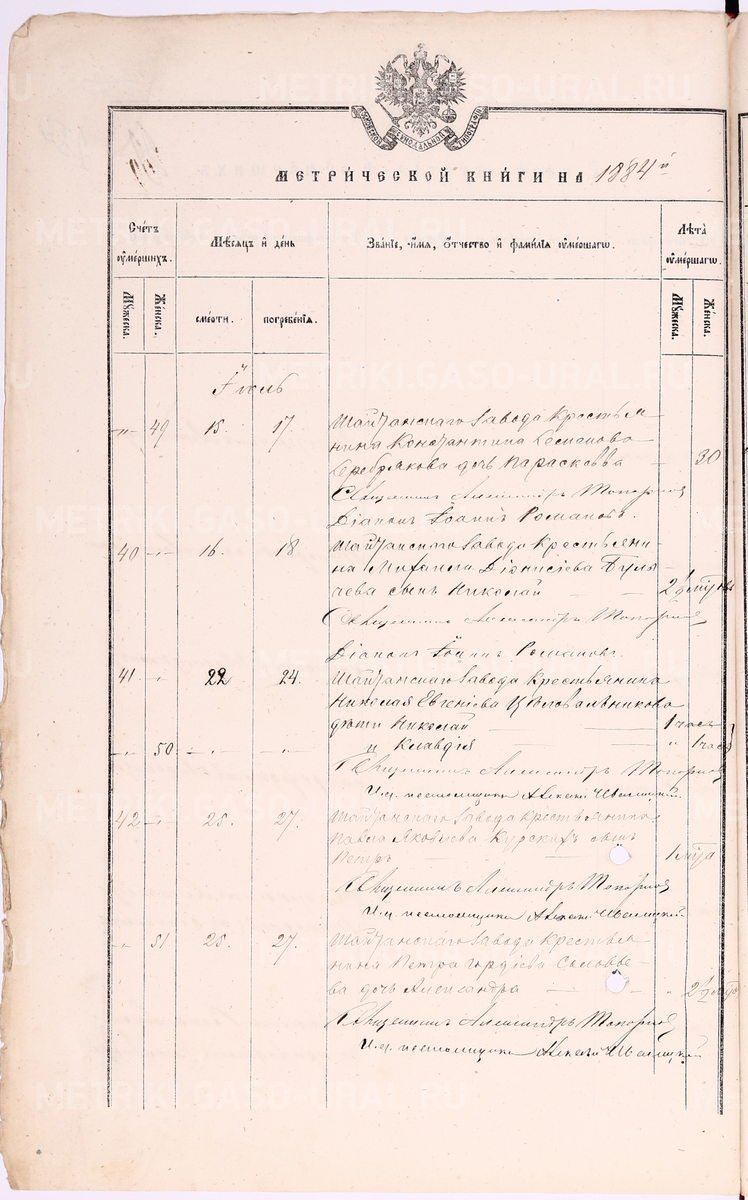 МЕТРИЧЕСКОЙ КНИГИ НА 1884й
Счетъ умершихъ.
Мѣсяцъ и день
Званіе, имя, отчество и фамилія умершаго.
Лѣта умершаго.
Мужеска.
Женска.
смерти.
погребенія.
Мужеска.
Женска.
Іюль
-"- 49 15. 17. Шайтанскаго завода крестья-
нина Константина Семенова
Серебрякова дочь Параскевва 30
Священникъ Александръ Топорков
Діаконъ Іоаннъ Романовъ.
40 -"- 16. 18 Шайтанскаго завода крестьяни-
на Михаила Діонисіева Булы
чева сынъ Николай 2½
Священникъ Александръ Топорков
Діаконъ Іоаннъ Романовъ.
41 " 22 24. Шайтанскаго завода крестьянина
Николая Евгеніева Цѣловальникова
дѣти Николай 1 часъ
-"- 50 -"- " " Клавдія " 1 часъ
Священникъ Александръ Топорков
И.д. псаломщика Алексѣй
42 -"- 25. 27. Шайтанскаго завода крестьянина
Павла Яковлева Курскихъ сынъ
Петръ 1 года
Священникъ Александръ Топорков
И.д. псаломщика Алексѣй
-"- 51 25. 27. Шайтанскаго завода крестья-
нина Петра Гордіева Соловье-
ва дочь Александра " 2½
Священникъ Александръ Топорков
И.д. псаломщика Алексѣй
METRIKI.GASO-URAL.RU